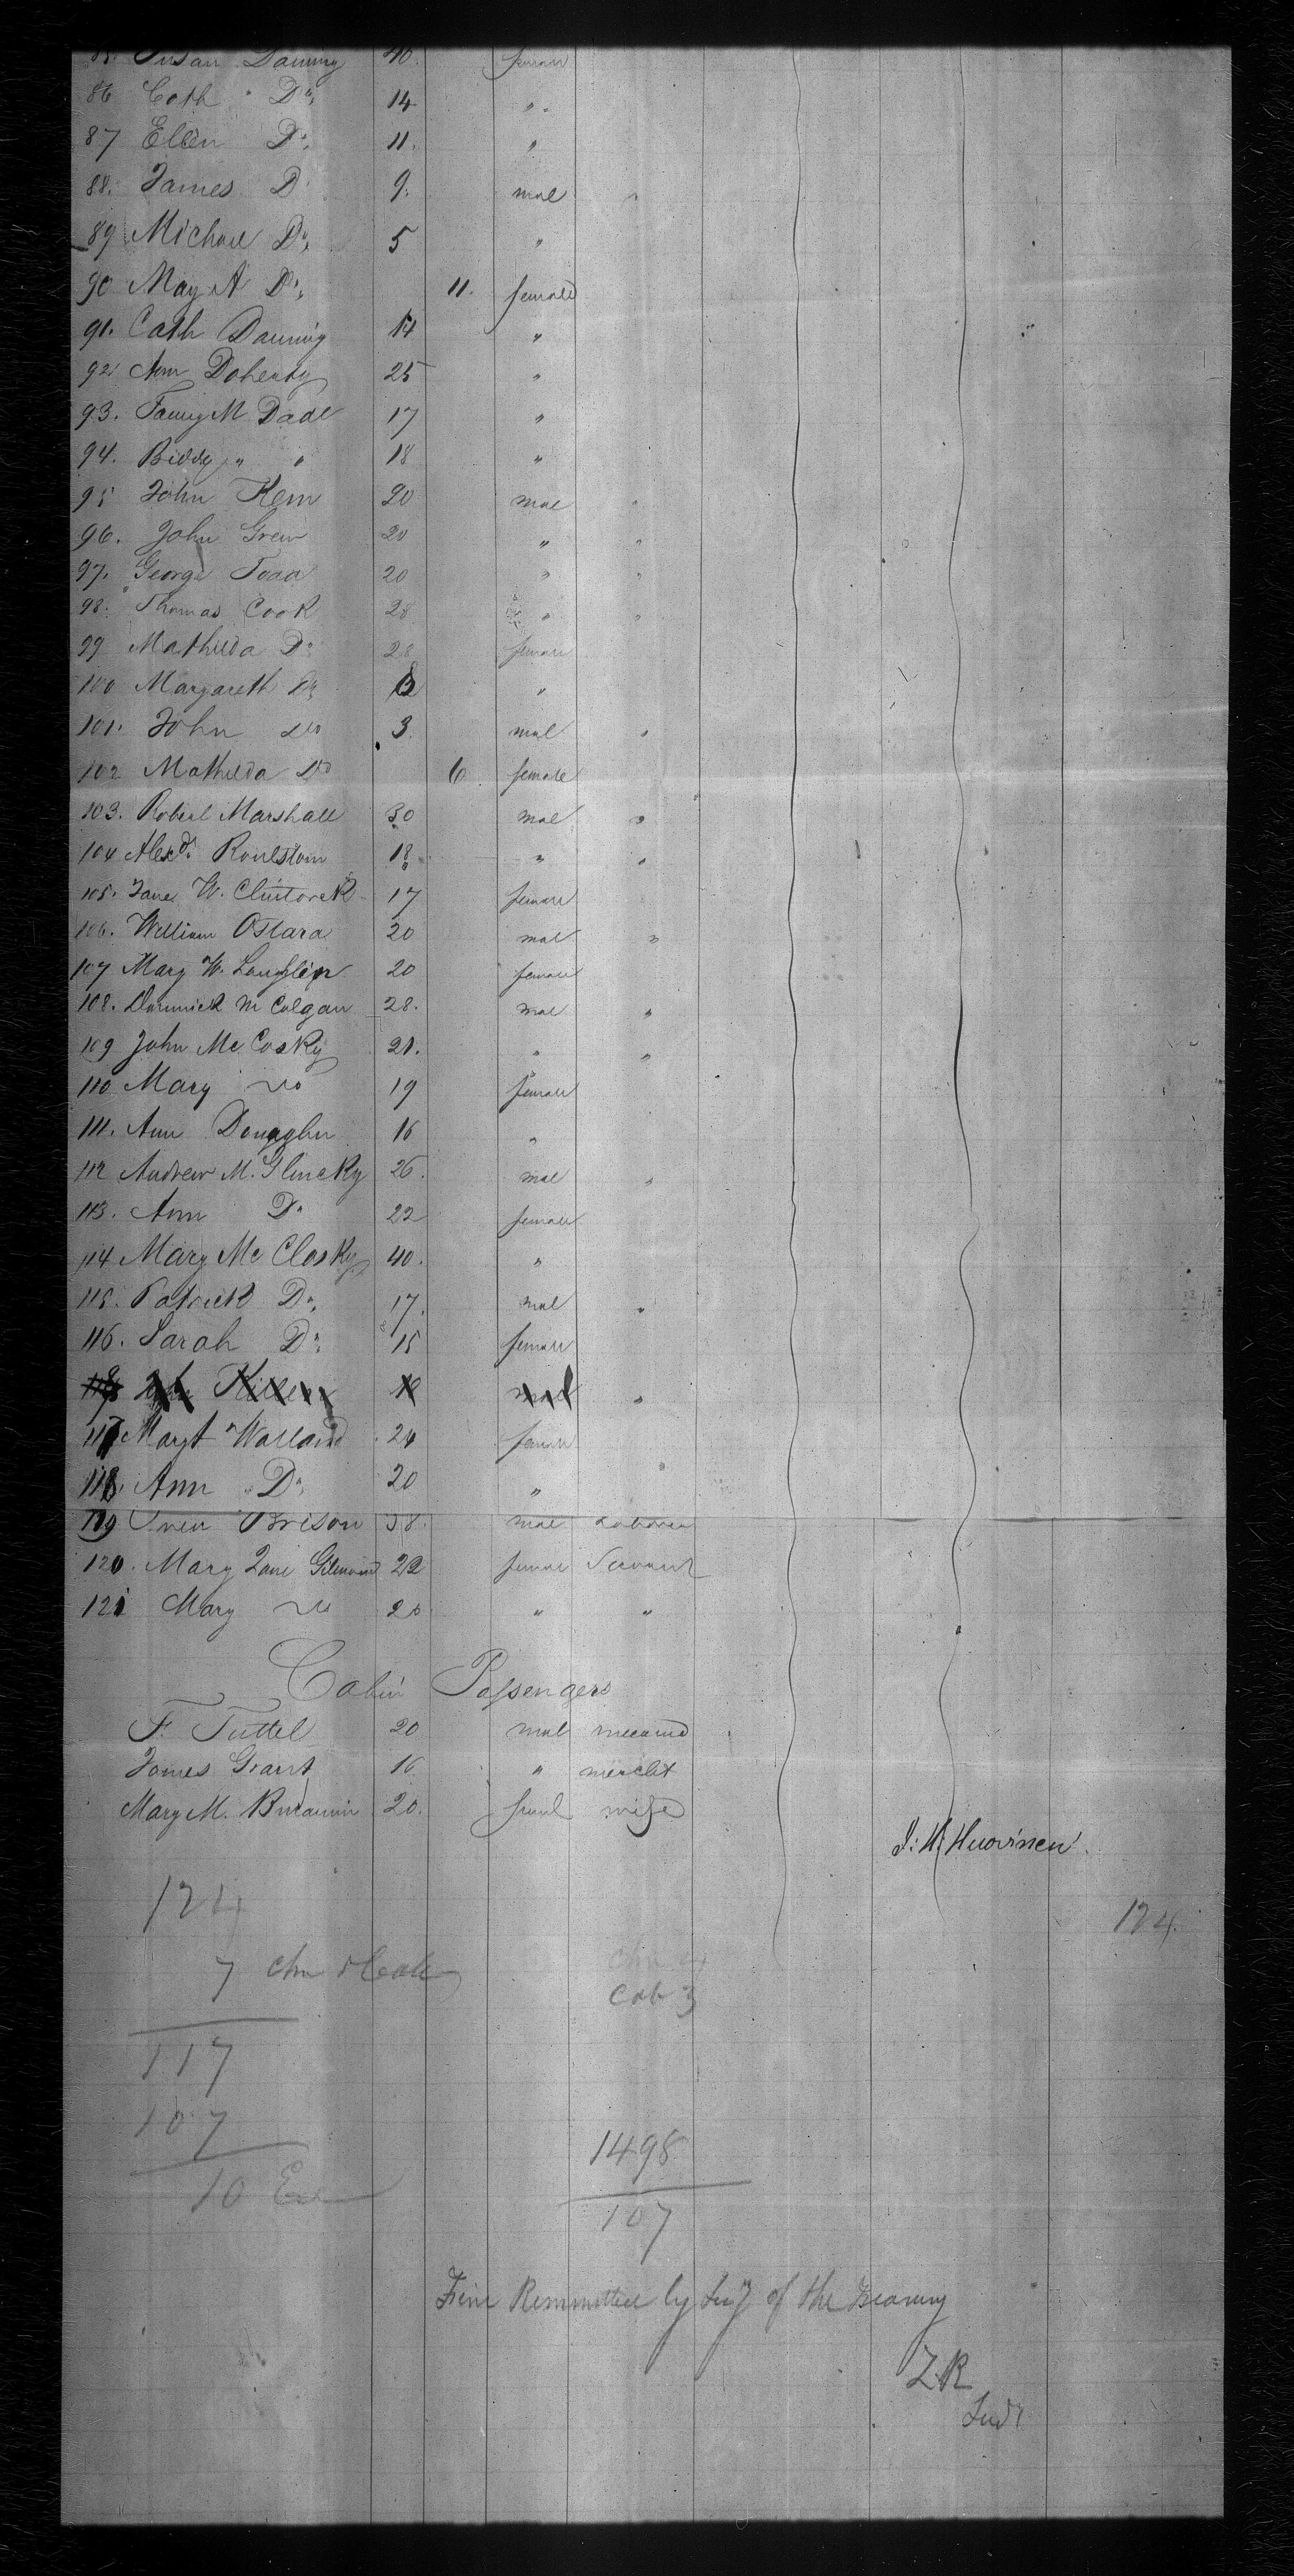 85. Susan Dauning 40. female
86 Cath Do, 14 "
87 Ellen Do, 11. "
88. James D 9. mal "
89 Michael Do, 5 "
90 May A Do, 11. female
91. Cath Dauning 17 "
92 Ann Doherty 25 "
93. Fanny M Dade 17 "
94. Biddy " " 18 "
95 John Kern 20 mal "
96. John Grew 20 " "
97. George Todd 20 " "
98. Thomas Cook 28 " "
99 Mathilda Do 28 female
100 Margareth Do "
101. John do 3. mal "
102 Mathilda Do 6. female
103. Robert Marshall 30 mal "
104 Alexdr. Roulstom 18 " "
105. Jane W. Clintock 17 female
106. William OHara 20 mal "
107 Mary W. Laughlin 20 female
108. Dominick M Colgan 28. mal "
109 John Mc Cosky 21. " "
110 Mary do 19 female
111. Ann Donagher 16 "
112 Andrew M. Glincky 26. mal "
113. Ann Do 22 female
114 Mary Mc Closky 40. "
115. Patrick Do, 17. mal "
116. Sarah Do. 15 female
Killen mal "
117 Margt Walland 24 female
118. Ann Do, 20 "
119 Brison 38. mal Laborer
120. Mary Jane 22 female Servant
121 Mary do 20 " "
Cabin Passengers
F. Tuttel 20 mal
James Grant 16 " mercht
Mary M. 20. femal wife
J. H. Huovinen
124
124.
7 chn & Cab
Chn 4
Cab 3
117
107
10 Ex
1498
107
Fine Remmitted by Secy of the Treasury
Z.R